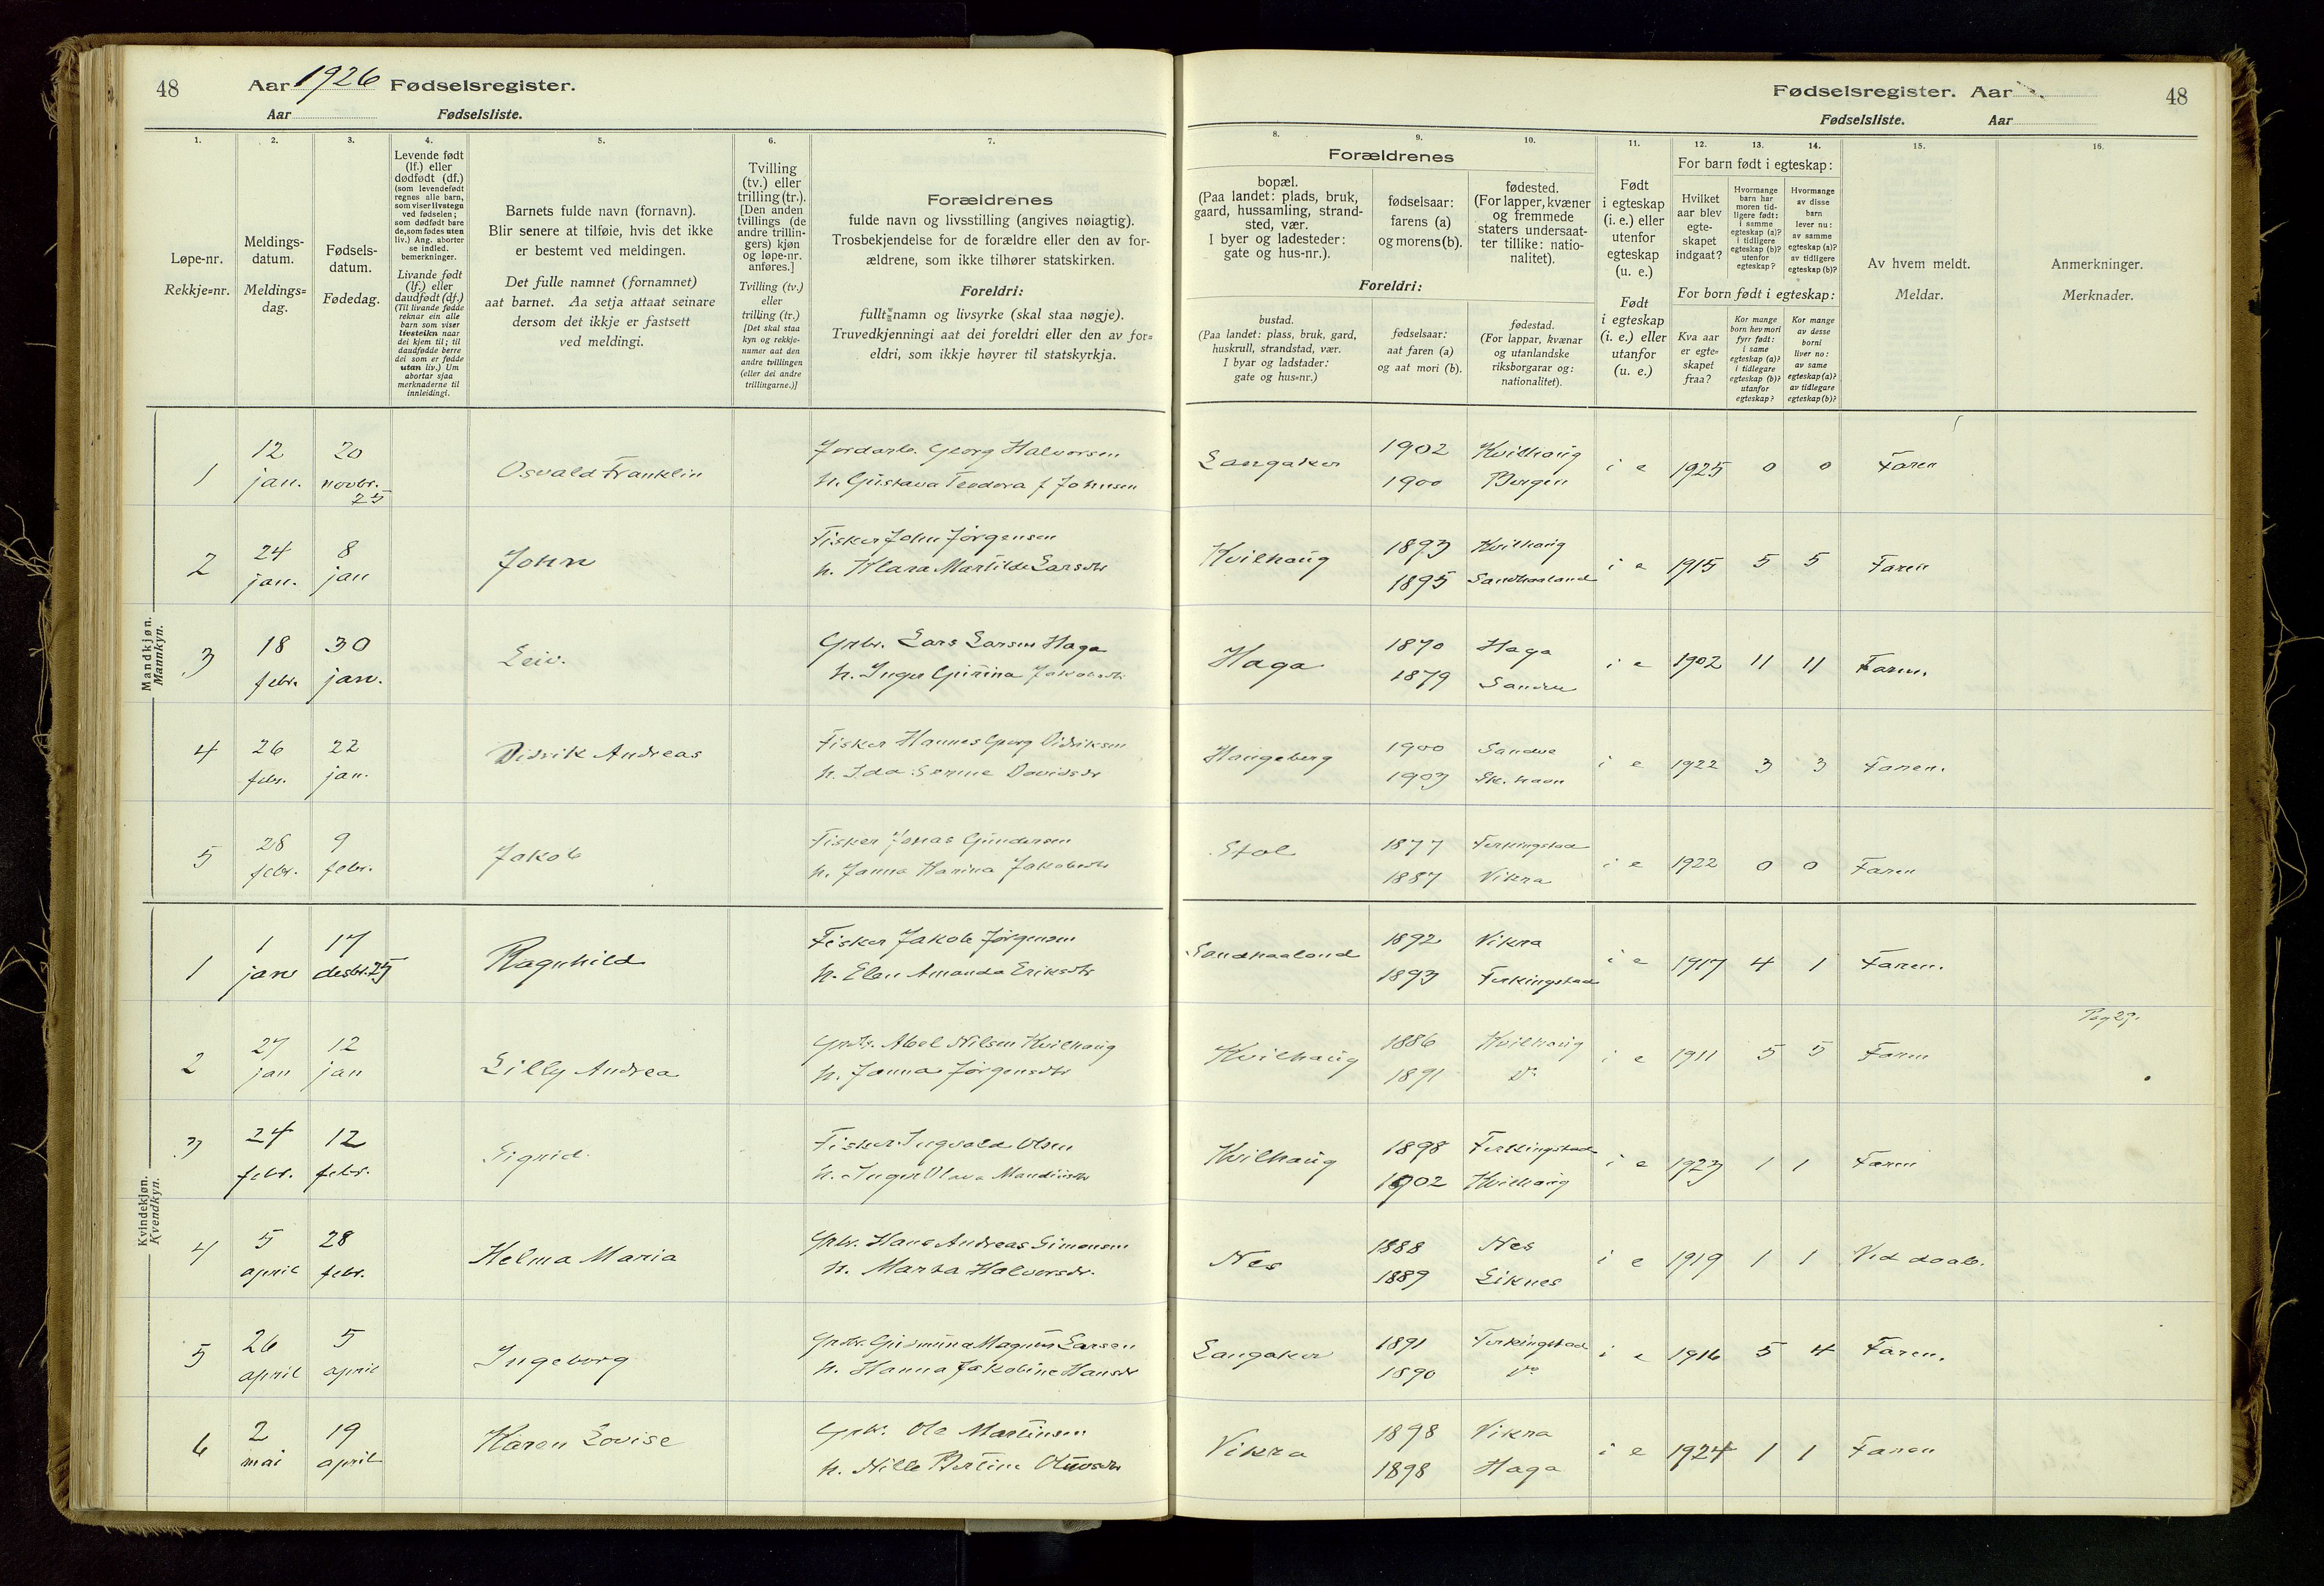 48
Aar 1926 Fødselsregister.
Aar Fødselsliste.
Fødselsregister. Aar
48
Fødselsliste. Aar
1.
2.
3.
4.
5.
6.
7.
8.
9.
10.
11.
12.
13.
14.
15.
16.
Løpe-nr.
Rekkje=nr.
Meldings-
datum.
Meldings=
dag.
Fødsels-
datum.
Fødedag.
Levende født
(lf.) eller
dødfødt (df.)
(som levendefødt
regnes alle barn,
som viser livstegn
ved fødselen;
som dødfødt bare
de, som fødes uten
liv.) Ang. aborter
se indled.
bemerkninger.
Livande født
(lf.) eller
daudfødt (df.)
(Til livande fødde
reknar ein alle
barn som viser
livsteikn naar
dei kjem til; til
daudfødde berre
dei som er fødde
utan liv.) Um
abortar sjaa
merknaderne til
innleidingi.
Barnets fulde navn (fornavn).
Blir senere at tilføie, hvis det ikke
er bestemt ved meldingen.
Det fulle namnet (fornamnet)
aat barnet. Aa setja attaat seinare
dersom det ikkje er fastsett
ved meldingi.
Tvilling
(tv.) eller
trilling (tr.).
[Den anden
tvillings (de
andre trillin-
gers) kjøn
og løpe-nr.
anføres.]
Tvilling (tv.)
eller
trilling (tr.)
[Det skal staa
kyn og rekkje-
numer aat den
andre tvillingen
(eller dei andre
trillingarne.)]
Forældrenes
fulde navn og livsstilling (angives nøiagtig).
Trosbekjendelse for de forældre eller den av for-
ældrene, som ikke tilhører statskirken.
Foreldri:
fullt namn og livsyrke (skal staa nøgje).
Truvedkjenningi aat dei foreldri eller den av for=
eldri, som ikkje høyrer til statskyrkja.
Forældrenes
bopæl.
(Paa landet: plads, bruk,
gaard, hussamling, strand-
sted, vær.
I byer og ladesteder:
gate og hus-nr.).
fødselsaar:
farens (a)
og morens (b).
fødested.
(For lapper, kvæner
og fremmede
staters undersaat-
ter tillike: natio-
nalitet).
Foreldri:
bustad.
(Paa landet: plass, bruk, gard,
huskrull, strandstad, vær.
I byar og ladstader:
gate og hus=nr.)
fødselsaar:
aat faren (a)
og aat mori (b).
fødestad.
(For lappar, kvænar
og utanlandske
riksborgarar og:
nationalitet).
Født
i egteskap
(i. e.) eller
utenfor
egteskap
(u. e.)
Født
i egteskap
(i. e.) eller
utanfor
(u. e.)
For barn født i egteskap:
Hvilket
aar blev
egte-
skapet
indgaat?
Hvormange
barn har
moren tid-
ligere født:
i samme
egteskap (a)?
i tidligere
egteskap (b)?
utenfor
egteskap?
Hvormange
av disse
barn
lever nu:
av samme
egteskap (a)?
av tidligere
egteskap (b)?
For born født i egteskap:
Kva aar
er egte-
skapet
fraa?
Kor mange
born hev mori
fyrr født:
i same
egteskap (a)?
i tidlegare
egteskap (b)?
utanfor
egteskap?
Kor mange
av desse
borni
liver no:
av same
egteskap (a)?
av tidlegare
egteskap (b)?
Av hvem meldt.
Meldar.
Anmerkninger.
Merknader.
Mandkjøn.
Mannkyn.
1 12 jan. 20 novbr. 25 Osvald Franklin Jordarb. Georg Halvorsen
h. Gustava Teodora f Johnsen
Langaker 1902 Kvilhaug i e 1925 0 0 Faren
1900 Bergen
2 24 jan. 8 jan John Fisker John Jørgensen
h. Klara Martilde Larsdtr
Kvilhaug 1893 Kvilhaug i e 1915 5 5 Faren
1895 Sandhaaland
3 18 febr. 30 jan. Leiv. Grbr. Lars Larsen Haga
h. Inger Gurina Jakobsdtr
Haga 1870 Haga i e 1902 11 11 Faren.
1879 Sandve
4 26 febr. 22 jan. Didrik Andreas Fisker Hannes Georg Didriksen
h. Ida Serine Davidsdr
Haugeberg 1900 Sandve i e 1922 3 3 Faren.
1903 Sk. havn
5 28 febr. 9 febr. Jakob Fisker Jonas Gundersen
h. Janna Hanina Jakobsdtr
Stol 1877 Ferkingstad i e 1922 0 0 Faren
1887 Vikra
Kvindekjøn.
Kvendkyn.
1 1 jan 17 desbr. 25 Ragnhild Fisker Jakob Jørgensen
h. Elen Amanda Eriksdtr
Sandhaaland 1892 Vikra i e 1917 4 1 Faren.
1893 Ferkingstad
2 27 jan 12 jan Lilly Andrea Grbr. Abel Nilsen Kvilhaug
h. Janna Jørgensdtr
Kvilhaug 1886 Kvilhaug i e 1911 5 5 Faren
1891 do
3 24 febr. 12 febr. Sigrid. Fisker Ingvald Olsen
h. Inger Olava Mandiusdtr
Kvilhaug 1898 Ferkingstad i e 1923 1 1 Faren
1902 Kvilhaug
4 5 april 28 febr. Helma Maria Grbr. Hans Andreas Simonsen
h. Marta Halvorsdr.
Nes 1888 Nes i e 1919 1 1 Ved daab.
1889 Liknes
5 26 april 5 april Ingeborg Grbr. Gudmund Magnus Larsen
h. Hanna Jakobine Hansdr
Langaker 1891 Ferkingstad i e 1916 5 4 Faren.
1890 do
6 2 mai 19 april Karen Lovise Grbr. Ole Martinsen
h. Nille Bertine Olavsdtr
Vikra 1898 Vikra i e 1924 1 1 Faren
1898 Haga